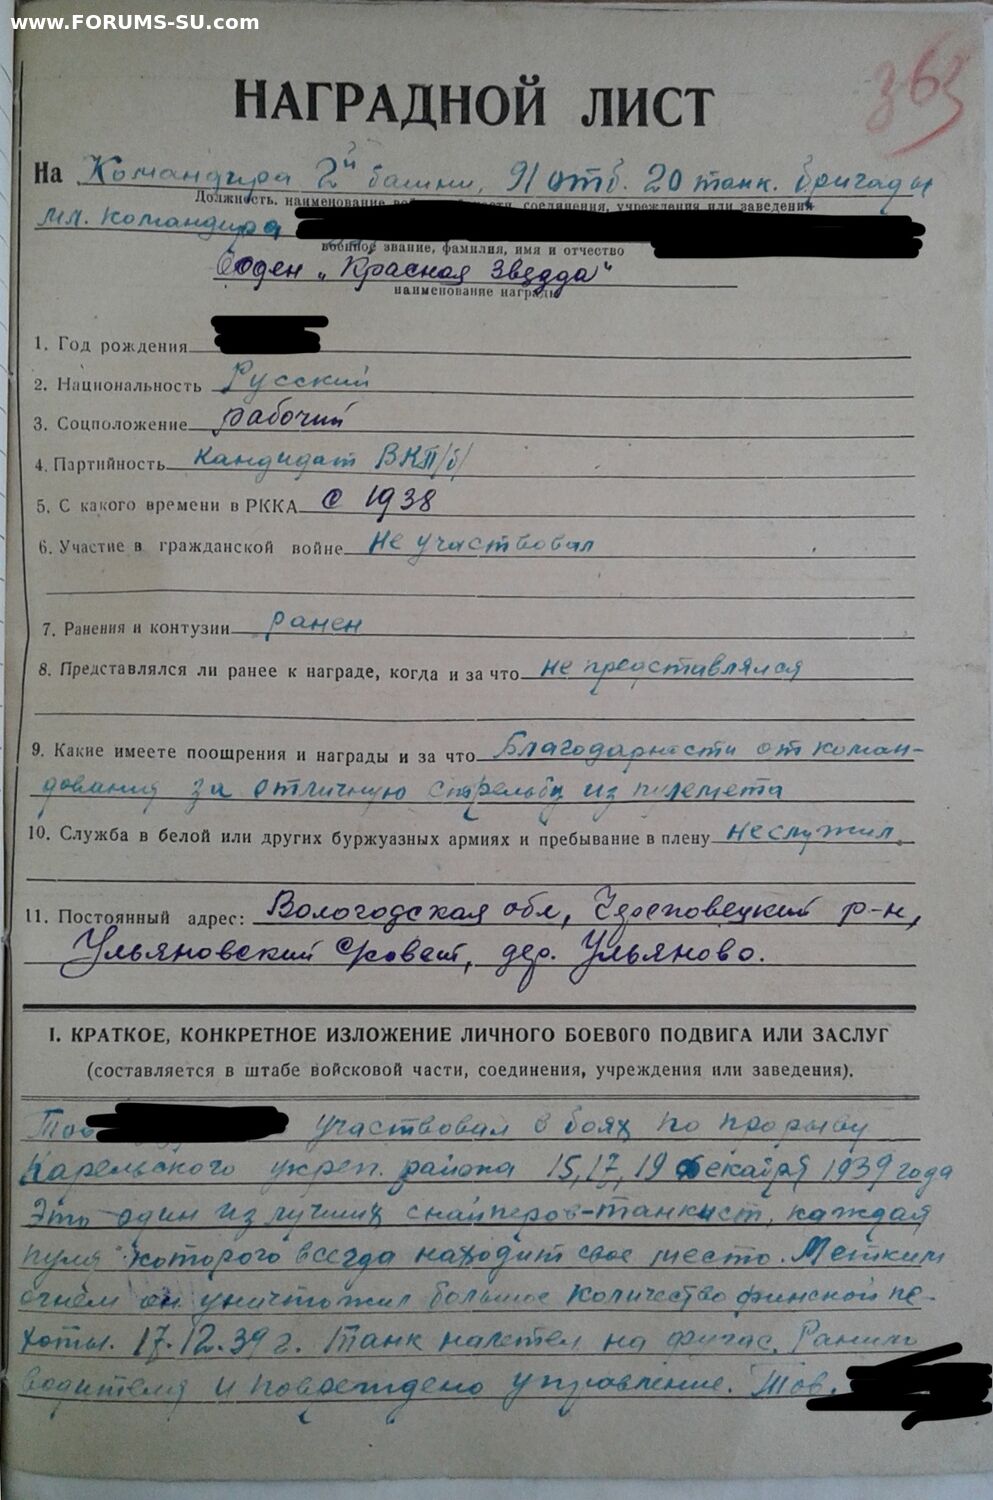 www.FORUMS-SU.com
363
НАГРАДНОЙ ЛИСТ
На Командира 2й башни, 91 отб. 20 танк. бригады
Должность, наименование соединения, учреждения или заведения
мл. командира
военное звание, фамилия, имя и отчество
Орден „Красная Звезда"
наименование награды
1. Год рождения
2. Национальность Русский
3. Соцположение рабочий
4. Партийность Кандидат ВКП/б/
5. С какого времени в РККА с 1938
6. Участие в гражданской войне Не участвовал
7. Ранения и контузии ранен
8. Представлялся ли ранее к награде, когда и за что не представлялся
9. Какие имеете поощрения и награды и за что Благодарности от коман-
дования за отличную стрельбу из пулемета
10. Служба в белой или других буржуазных армиях и пребывание в плену не служил.
11. Постоянный адрес: Вологодская обл, Череповецкий р-н,
Ульяновский с/совет, дер. Ульяново.
I. КРАТКОЕ, КОНКРЕТНОЕ ИЗЛОЖЕНИЕ ЛИЧНОГО БОЕВОГО ПОДВИГА ИЛИ ЗАСЛУГ
(составляется в штабе войсковой части, соединения, учреждения или заведения).
Тов участвовал в боях по прорыву
Карельского укреп. района 15, 17, 19 декабря 1939 года
Это один из лучших снайперов-танкист, каждая
пуля которого всегда находит свое место. Метким
огнём он уничтожил большое количество финской пе-
хоты. 17.12.39 г. танк налетел на фугас. Ранило
водителя и повреждено управление. Тов.